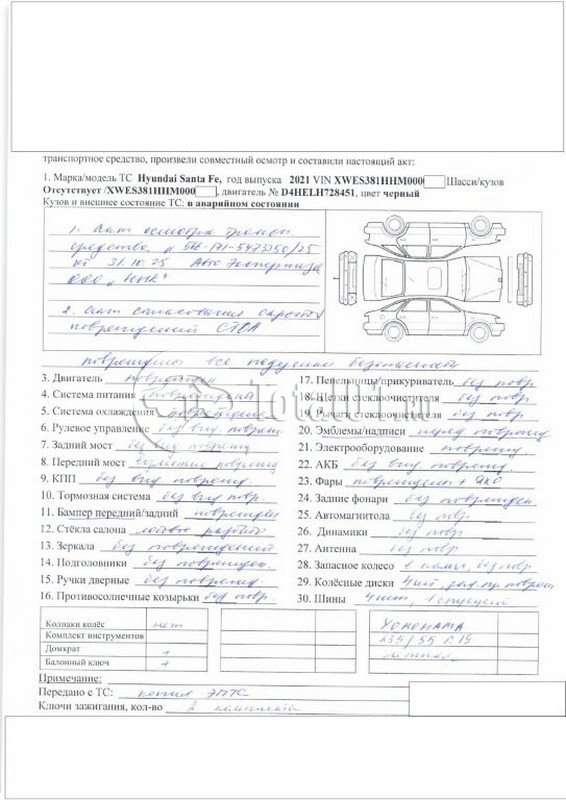 транспортное средство, произвели совместный осмотр и составили настоящий акт:
1. Марка/модель ТС Hyundai Santa Fe, год выпуска 2021 VIN XWES381HHM000 Шасси/кузов
Отсутствует /XWES381HHM000 , двигатель № D4HELH728451, цвет черный
Кузов и внешнее состояние ТС: в аварийном состоянии
1. Акт осмотра трансп
средства,
от 31.10.25 Авто Экспертиза
ООО „НИК“
2. Акт согласования скрытых
повреждений СТОА
повреждены все подушки безопасности
3. Двигатель поврежден
4. Система питания повреждена
5. Система охлаждения повреждена
6. Рулевое управление без вид поврежд
7. Задний мост без вид поврежд
8. Передний мост поврежд
9. КПП без вид поврежд
10. Тормозная система без вид повр
11. Бампер передний/задний поврежден
12. Стёкла салона лобовое разбито
13. Зеркала без повреждений
14. Подголовники без повреждений
15. Ручки дверные без поврежд
16. Противосолнечные козырьки без повр
17. Пепельницы/прикуриватель без повр
18. Щетки стеклоочистителя без повр
19. Рычаги стеклоочистителя без повр
20. Эмблемы/надписи перед поврежд
21. Электрооборудование поврежд
22. АКБ без вид поврежд
23. Фары повреждены
24. Задние фонари без поврежден
25. Автомагнитола без повр
26. Динамики без повр
27. Антенна без повр
28. Запасное колесо без повр
29. Колёсные диски 4 шт,
30. Шины 4 шт, 1
Колпаки колёс нет
Комплект инструментов
Домкрат +
Балонный ключ +
YOKOHAMA
235/55 R19
Примечание:
Передано с ТС: копия ЭПТС
Ключи зажигания, кол-во 2 комплекта